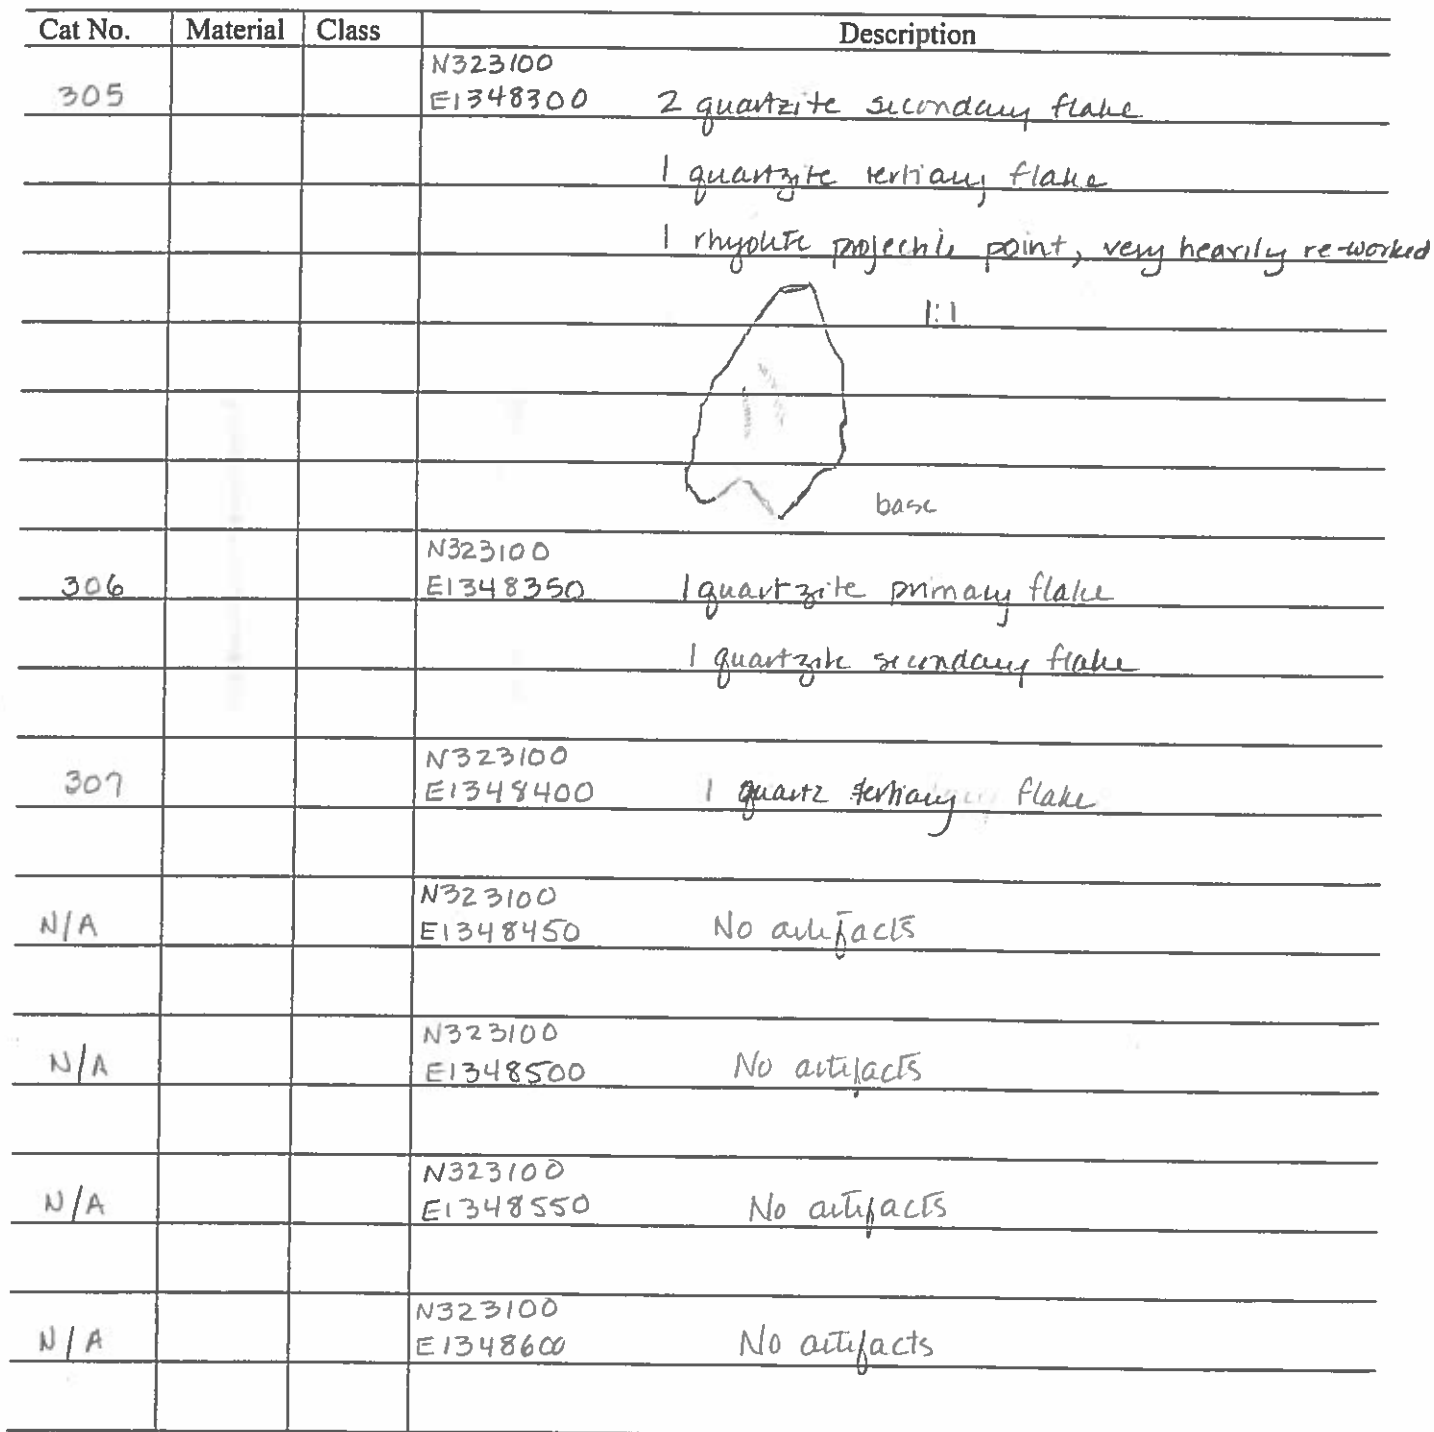 Cat No. Material Class Description
N323100
305 E1348300 2 quartzite secondary flake
1 quartzite tertiary flake
1 rhyolite projectile point, very heavily re-worked
1:1
base
N323100
306 E1348350 1 quartzite primary flake
1 quartzite secondary flake
N323100
307 E1348400 1 quartz tertiary flake
N323100
N/A E1348450 No artifacts
N323100
N/A E1348500 No artifacts
N323100
N/A E1348550 No artifacts
N323100
N/A E1348600 No artifacts